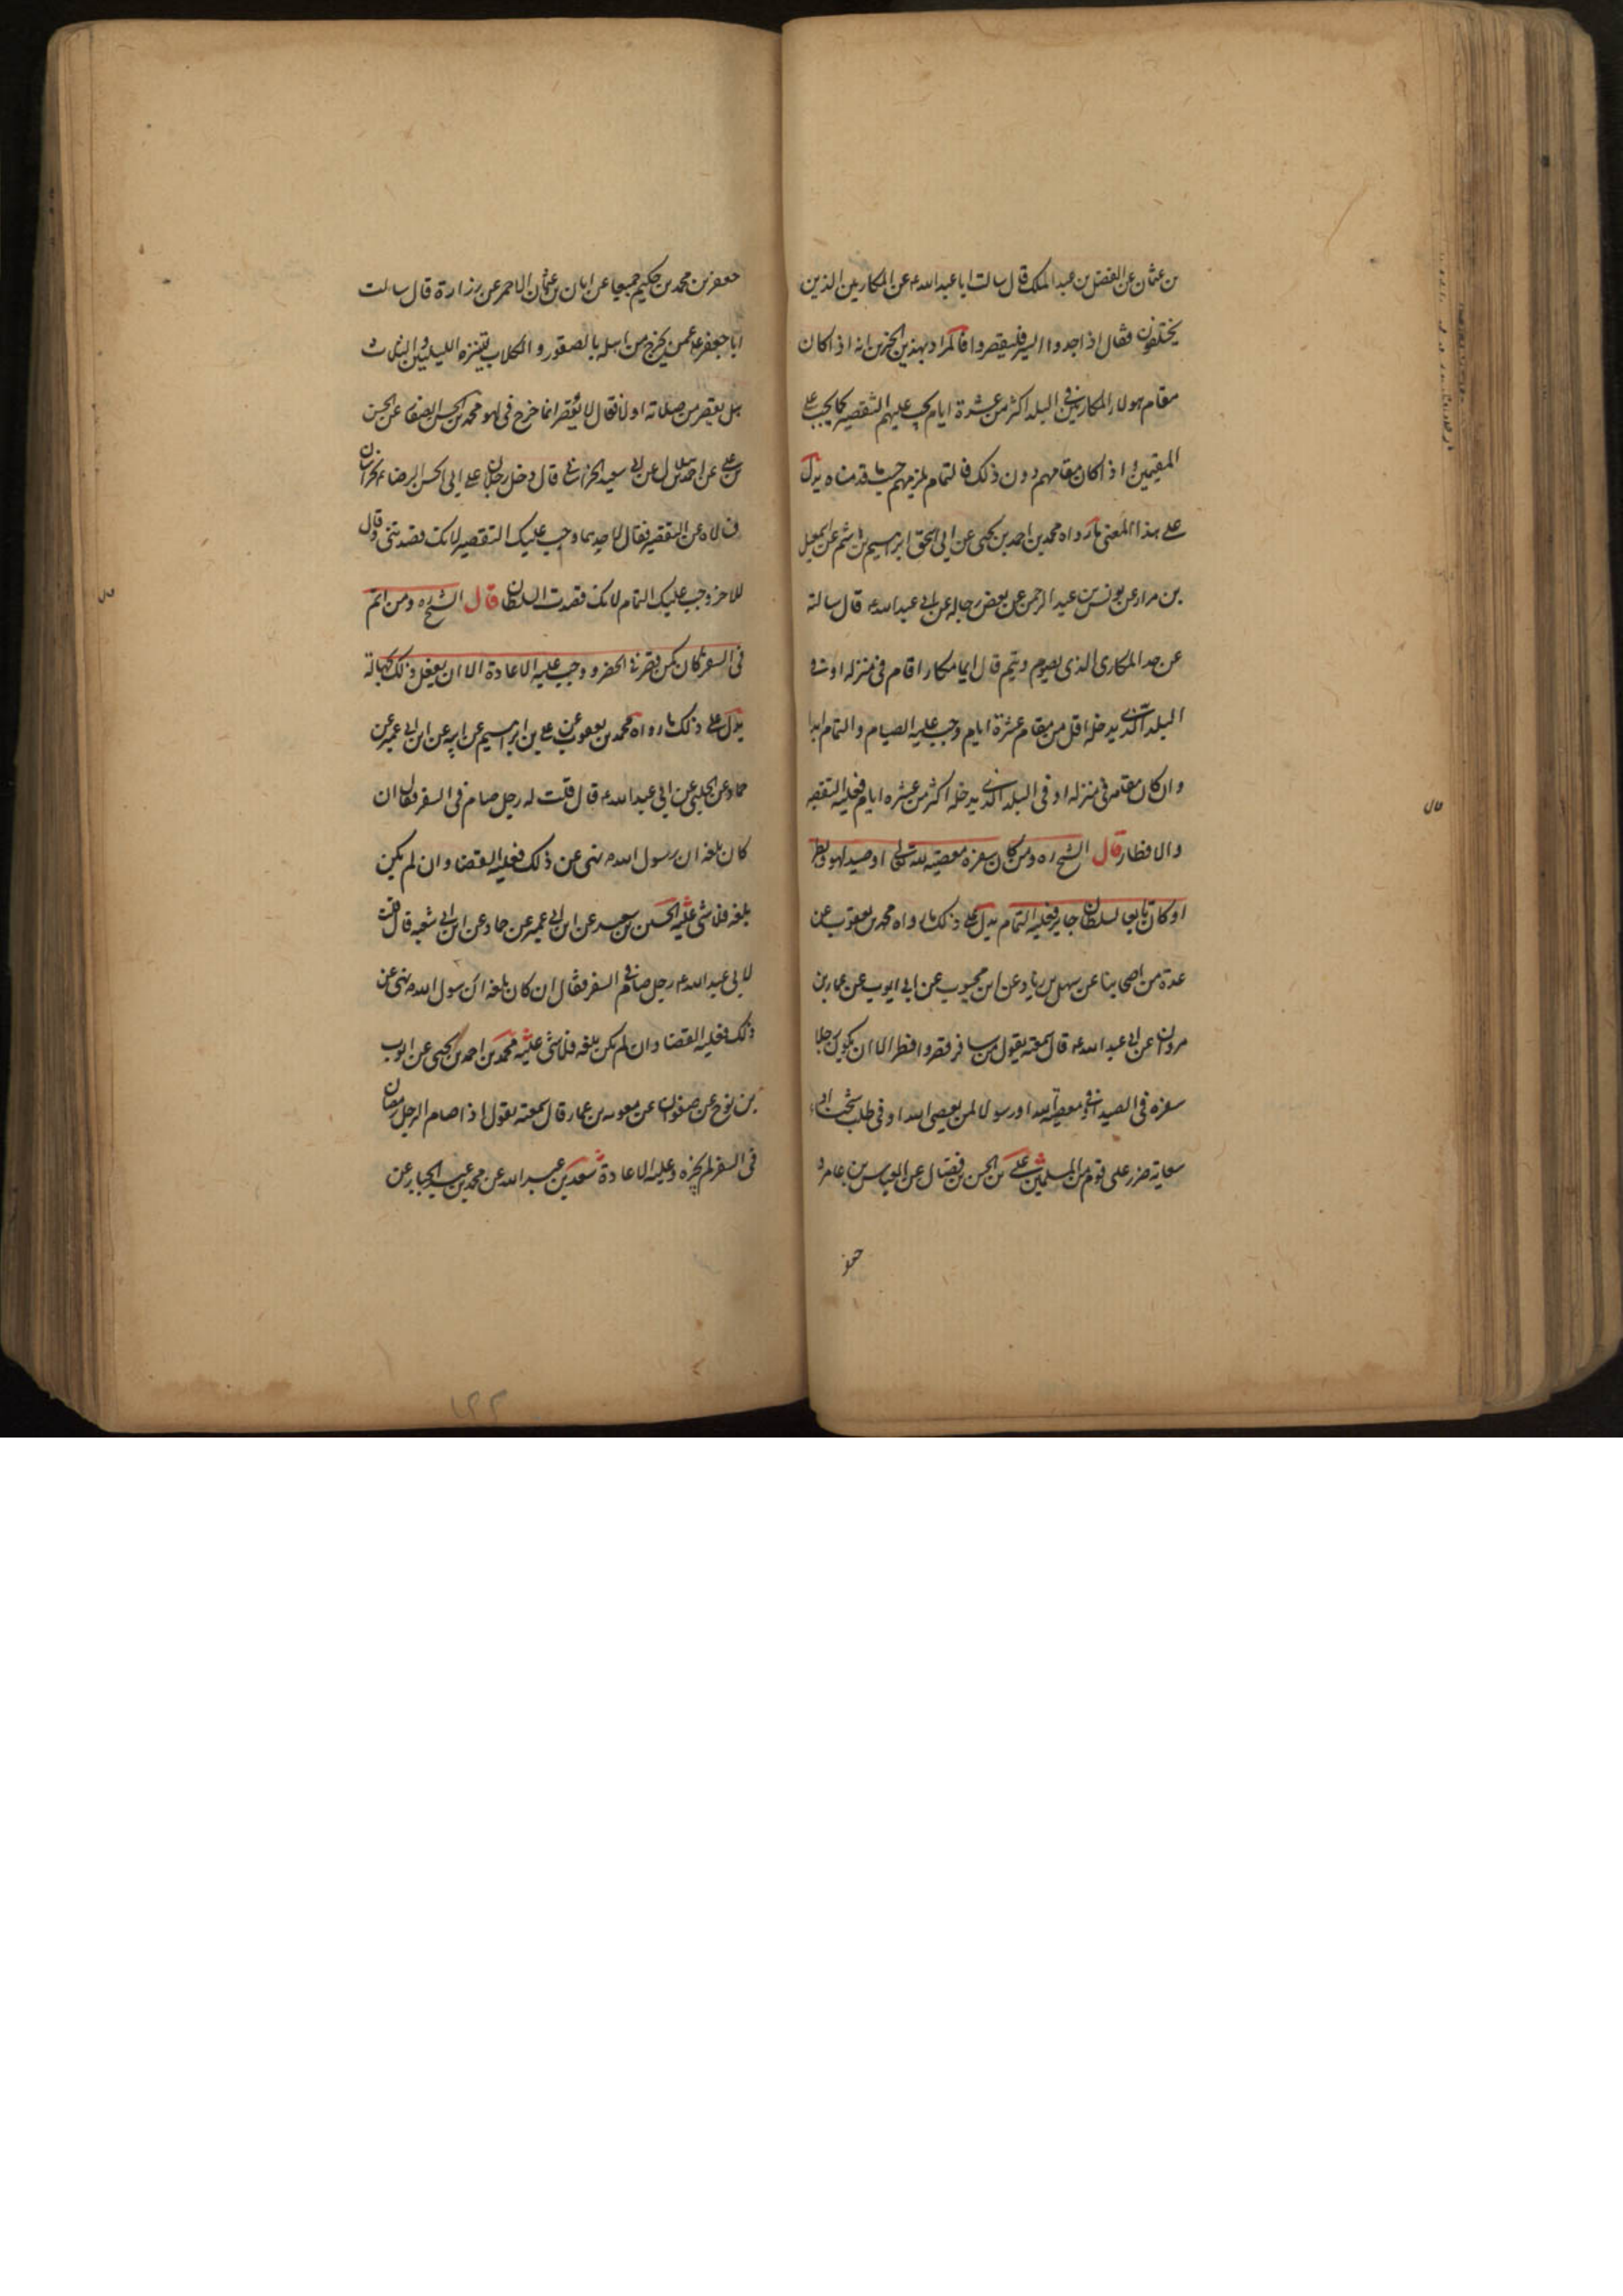 بن عثمان عن الفضل بن عبد الملك قال سالت ابا عبد الله ع عن المكارين الذين
يختلفون فقال اذا جدوا السير فليقصروا فالمراد بهذين الخبرين انه اذا كان
مقام هولاء المكارين في البلد اكثر من عشرة ايام يجب عليهم التقصير كما يجب على
المقيمين و اذا كان مقامهم دون ذلك فالتمام يلزمهم حسب ما قدمناه يدل
على هذا المعنى ما رواه محمد بن احمد بن يحيى عن ابي اسحق ابراهيم بن هاشم عن اسمعيل
بن مرار عن يونس بن عبد الرحمن عن بعض رجاله عن ابي عبد الله ع قال سالته
عن حد المكارى الذى يصوم و يتم قال ايما مكار اقام في منزله او في
البلد الذي يدخله اقل من مقام عشرة ايام وجب عليه الصيام و التمام ابدا
و ان كان مقامه في منزله او فى البلد الذي يدخله اكثر من عشره ايام فعليه التقصير
و الافطار قال الشيخ ره و من كان سفره معصيه لله تعالى او صيد لهو و بطر
او كان تابعا لسلطان جاير فعليه التمام يدل على ذلك ما رواه محمد بن يعقوب عن
عدة من اصحابنا عن سهل بن زياد عن ابن محبوب عن ابي ايوب عن عمار بن
مروان عن ابي عبد الله ع قال سمعته يقول من سافر قصر و افطر الا ان يكون رجلا
سفره فى الصيد او في معصية الله او رسولا لمن يعصى الله او فى طلب شحناء او
سعاية ضرر على قوم من المسلمين على بن الحسن بن فضال عن العباس بن عامر و
جعفر
جعفر بن محمد بن حكيم جميعا عن ابان بن عثمان الاحمر عن زرارة قال سالت
ابا جعفر ع عمن يخرج من اهله بالصقور و الكلاب يتنزه الليلتين و الثلاث
هل يقصر من صلاته او لا فقال لا يقصر انما خرج فى لهو محمد بن الحسن الصفار عن الحسن
بن علي عن احمد بن هلال عن ابي سعيد الخراساني قال دخل رجلان على ابي الحسن الرضا ع بخراسان
فسالاه عن التقصير فقال لاحدهما وجب عليك التقصير لانك قصدتنى و قال
للاخر وجب عليك التمام لانك قصدت السلطان قال الشيخ ره و من اتم
فى السفر كان كمن قصر في الحضر و وجب عليه الاعادة الا ان يفعل ذلك بجهالة
يدل على ذلك ما رواه محمد بن يعقوب عن على بن ابراهيم عن ابيه عن ابن ابي عمير عن
حماد عن الحلبي عن ابي عبد الله ع قال قلت له رجل صام فى السفر فقال ان
كان بلغه ان رسول الله ص نهى عن ذلك فعليه القضا و ان لم يكن
بلغه فلا شى عليه الحسين بن سعيد عن ابن ابي عمير عن حماد عن ابن ابي شعبه قال قلت
لابى عبد الله ع رجل صام في السفر فقال ان كان بلغه ان رسول الله ص نهى عن
ذلك فعليه القضا و ان لم يكن بلغه فلا شى عليه محمد بن احمد بن يحيى عن ايوب
بن نوح عن صفوان عن معويه بن عمار قال سمعته يقول اذا صام الرجل رمضان
فى السفر لم يجزه و عليه الاعادة سعد بن عبد الله عن محمد بن عبد الجبار عن